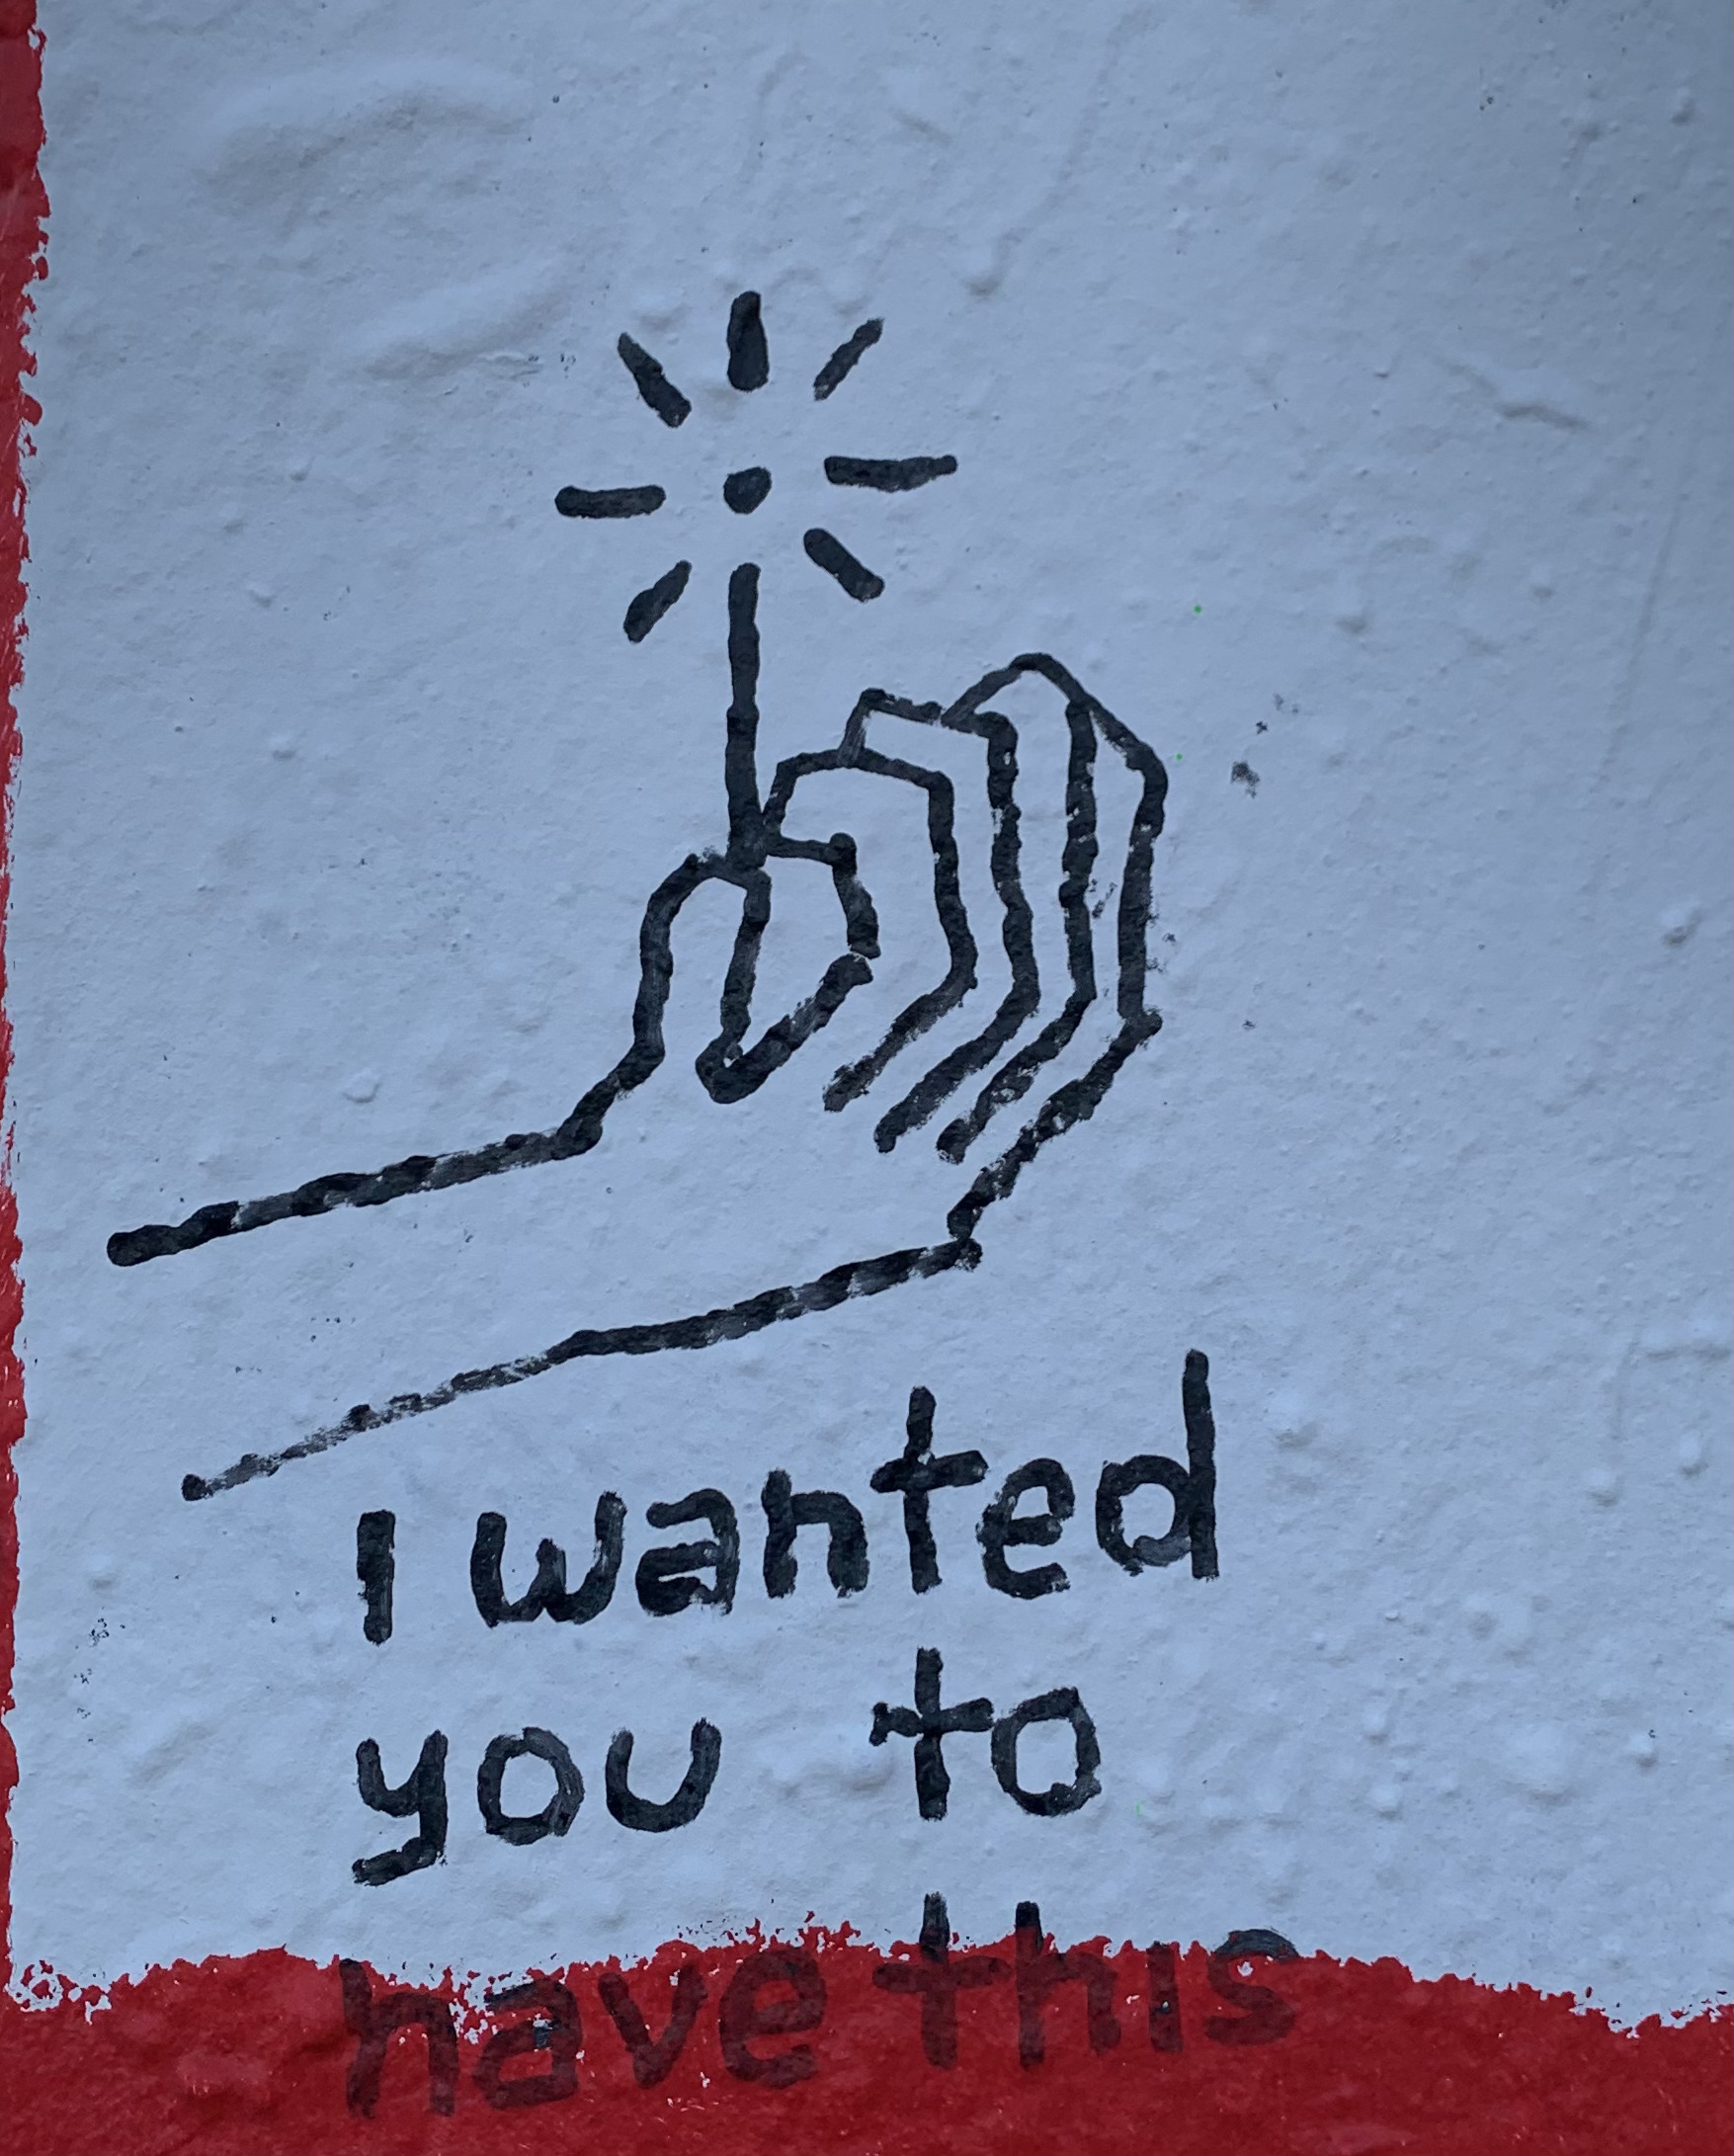 I wanted
you to
have this